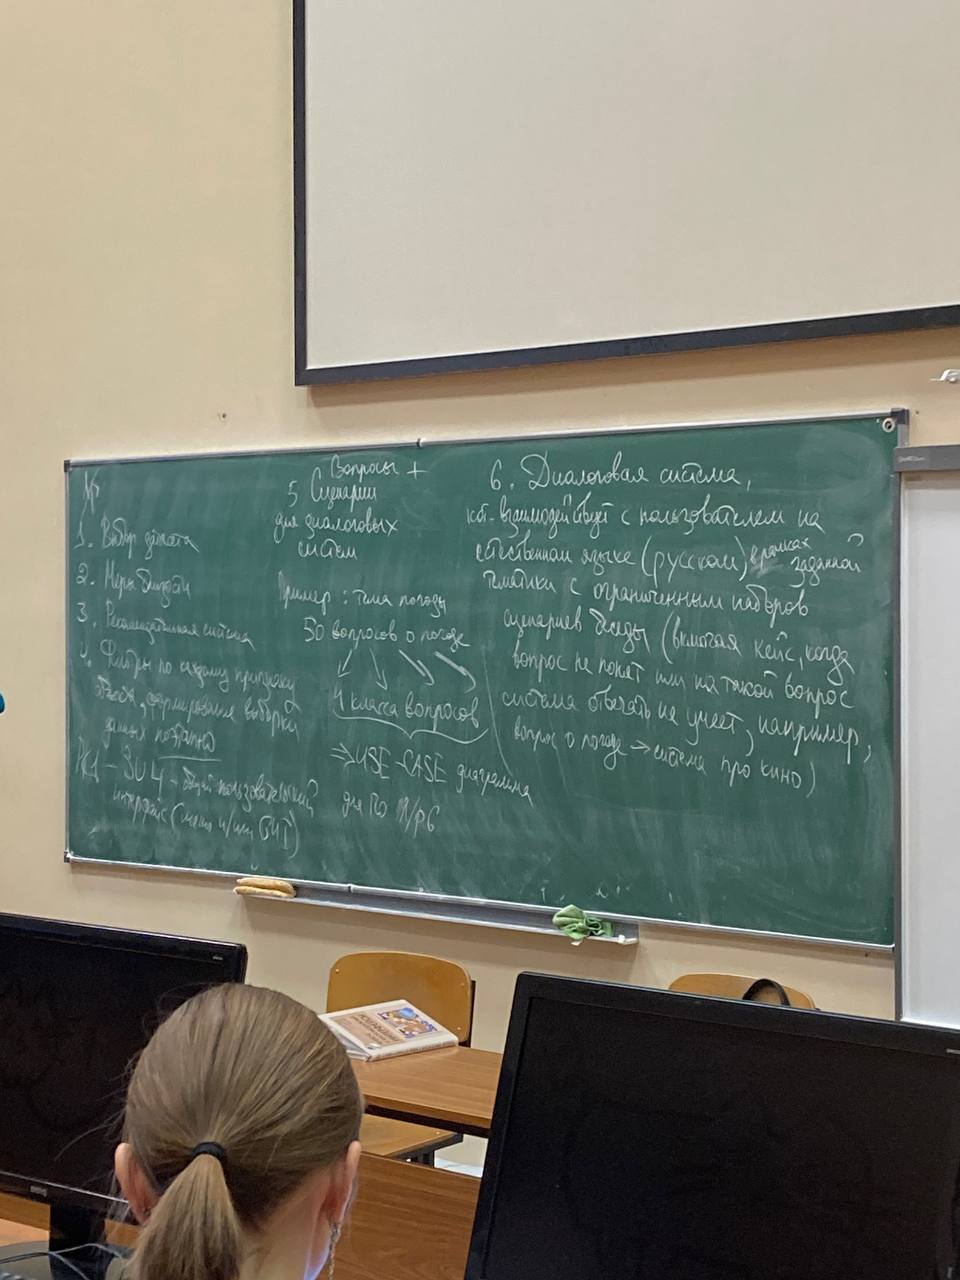 1. Выбор датасета
2. Меры близости
3. Рекомендательная система
4. Фильтры по каждому признаку
объекта, формирование выборки
данных поэтапно
РК1 - 3 и 4 - общий пользовательский
интерфейс (меню и/или GUI)
Вопросы +
5 Сценарии
для диалоговых
систем
Пример: тема погоды
50 вопросов о погоде
4 класса вопросов
=> USE-CASE диаграмма
для ПО Л/р6
6. Диалоговая система,
кот. взаимодействует с пользователем на
естественном языке (русском) в рамках заданной
тематики с ограниченным набором
сценариев беседы (включая кейс, когда
вопрос не понят или на такой вопрос
система отвечать не умеет, например,
вопрос о погоде → система про кино)